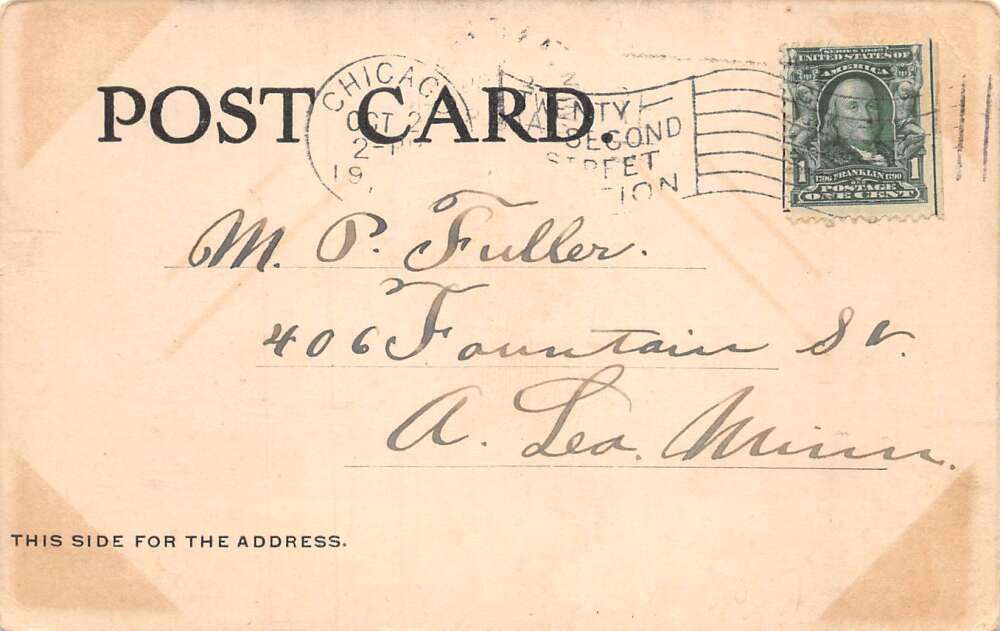 POST CARD.
CHICAG
OCT 2
2-P
19
TWENTY
SECOND
STREET
TION
SERIES 1902
UNITED STATES OF
AMERICA
1706 FRANKLIN 1790
1 POSTAGE 1
ONE CENT
M. P. Fuller.
406 Fountain St.
A. Lea. Minn.
THIS SIDE FOR THE ADDRESS.